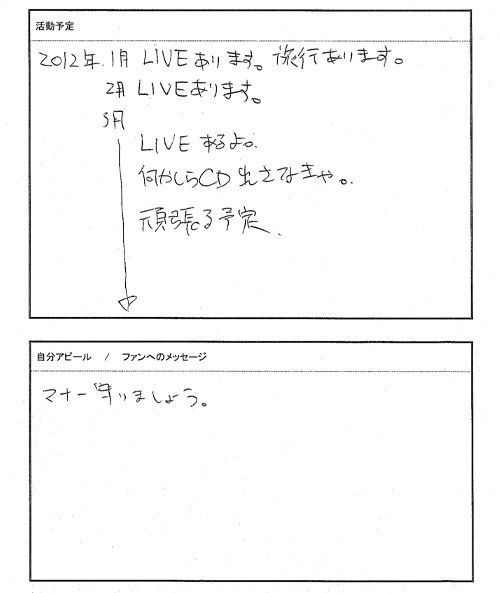 活動予定
2012年.1月 LIVEあります。旅行あります。
2月 LIVEあります。
3月
LIVE するよ。
何かしらCD 出さなきゃ。
頑張る予定.
自分アピール / ファンへのメッセージ
マナー守りましょう。